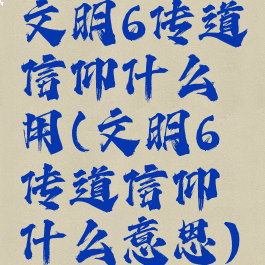 文明6传道
信仰什么
用(文明6
传道信仰
什么意思)